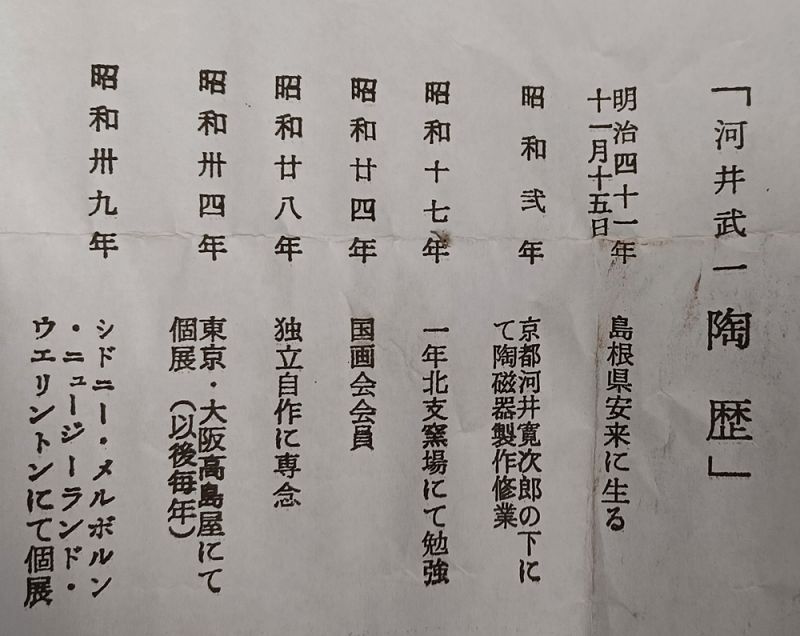 「河井武一陶歴」
明治四十一年
十一月十五日
島根県安来に生る
昭和弐年
京都河井寛次郎の下に
て陶磁器製作修業
昭和十七年
一年北支窯場にて勉強
昭和廿四年
国画会会員
昭和廿八年
独立自作に専念
昭和卅四年
東京・大阪高島屋にて
個展（以後毎年）
昭和卅九年
シドニー・メルボルン
・ニュージーランド・
ウエリントンにて個展